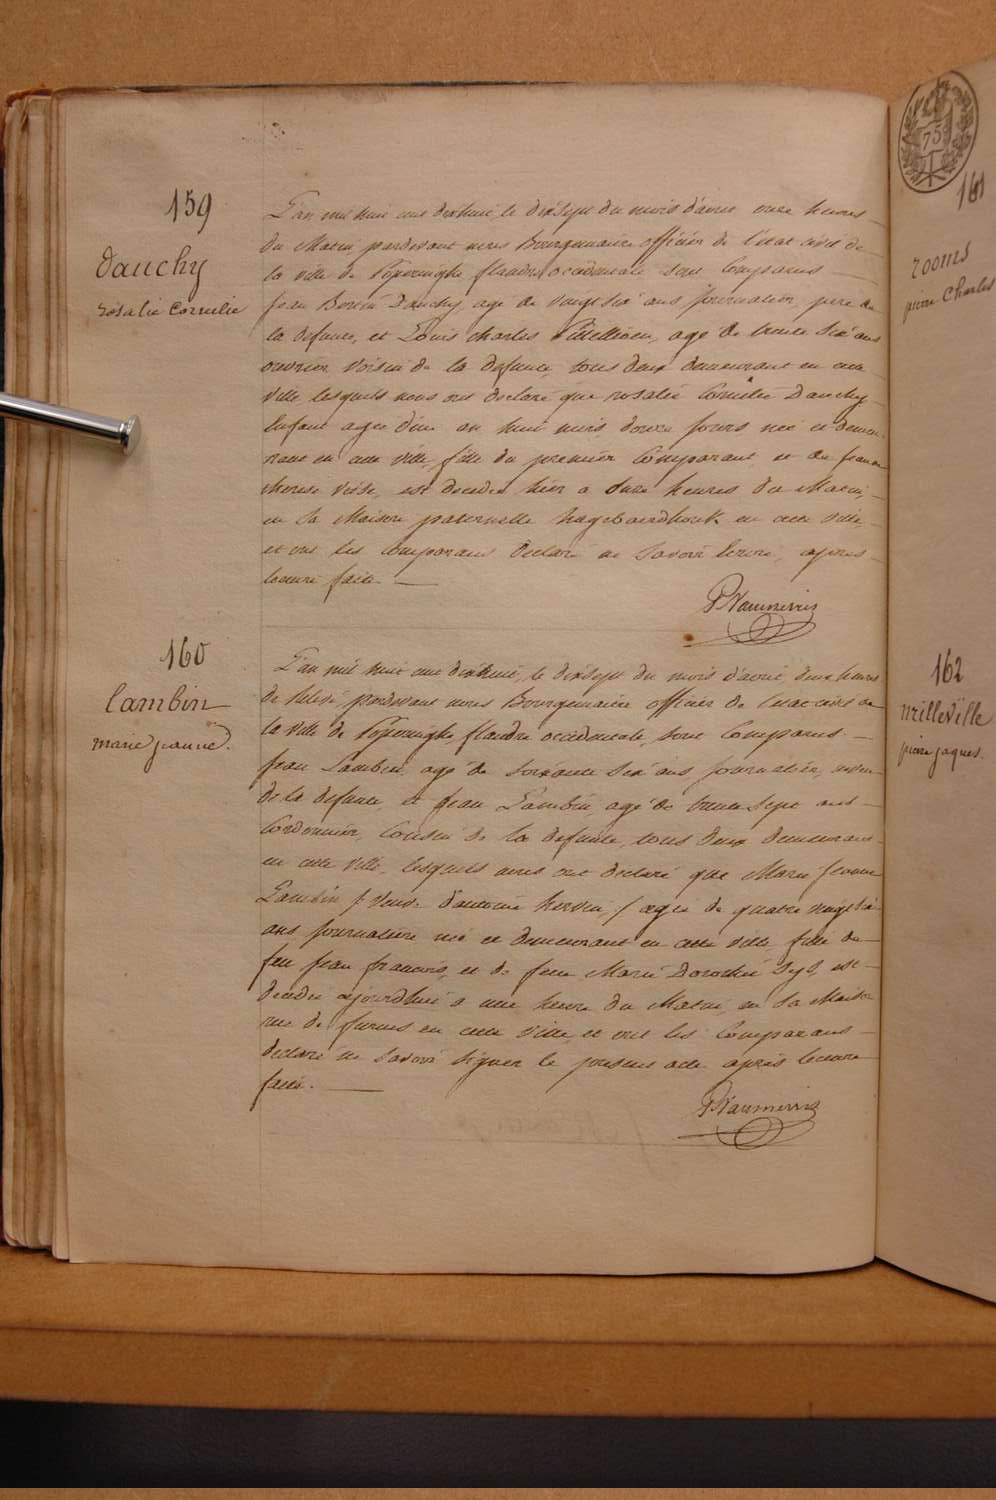 159
Dauchy
rosalie Cornelie
L'an mil huit cent dixhuit, le dixsept du mois d'avril onze heures
du Matin, pardevant nous Bourguemaitre officier de l'état civil de
la ville de Poperinghe flandre occidentale sont Comparus
Jean Dauchy agé de vingt six ans journalier, pere de
la defunte, et Louis Charles agé de trente six ans
ouvrier, Voisin de la defunte, tous deux demeurant en cette
ville lesquels nous ont declaré que rosalie Cornelie Dauchy
Enfant agée d'un an huit mois, douze jours née et demeu-
rant en cette ville, fille du premier Comparant et de jeanne
therese est decedée hier a onze heures du Matin,
en sa Maison paternelle en cette ville,
et ont les comparans declaré ne savoir Ecrire, apres
lecture faite
PVanmerris
160
lambin
marie jeanne.
L'an mil huit cent dixhuit, le dixsept du mois d'avril, deux heures
de relevé, pardevant nous Bourguemaitre officier de l'etat civil de
la ville de Poperinghe, flandre occidentale, sont Comparus
Jean Lambin, agé de soixante six ans, journalier, neveu
de la defunte, et Jean Lambin, agé de trente sept ans
Cordonnier, Cousin de la defunte, tous deux demeurans
en cette ville, lesquels nous ont declaré que Marie Jeanne
Lambin /: Veuve d'antoine / agée de quatre vingt six
ans journaliere née et demeurant en cette ville fille de
feu jean francois, et de feue Marie Dorothée est
decedée ajourdhui a une heure du Matin, en sa Maison
rue de furnes en cette ville, et ont les Comparans
declaré ne savoir signer le present acte après lecture
faite.
PVanmerris
75
161
rooms
pierre Charles
162
milleville
pierre jaques.